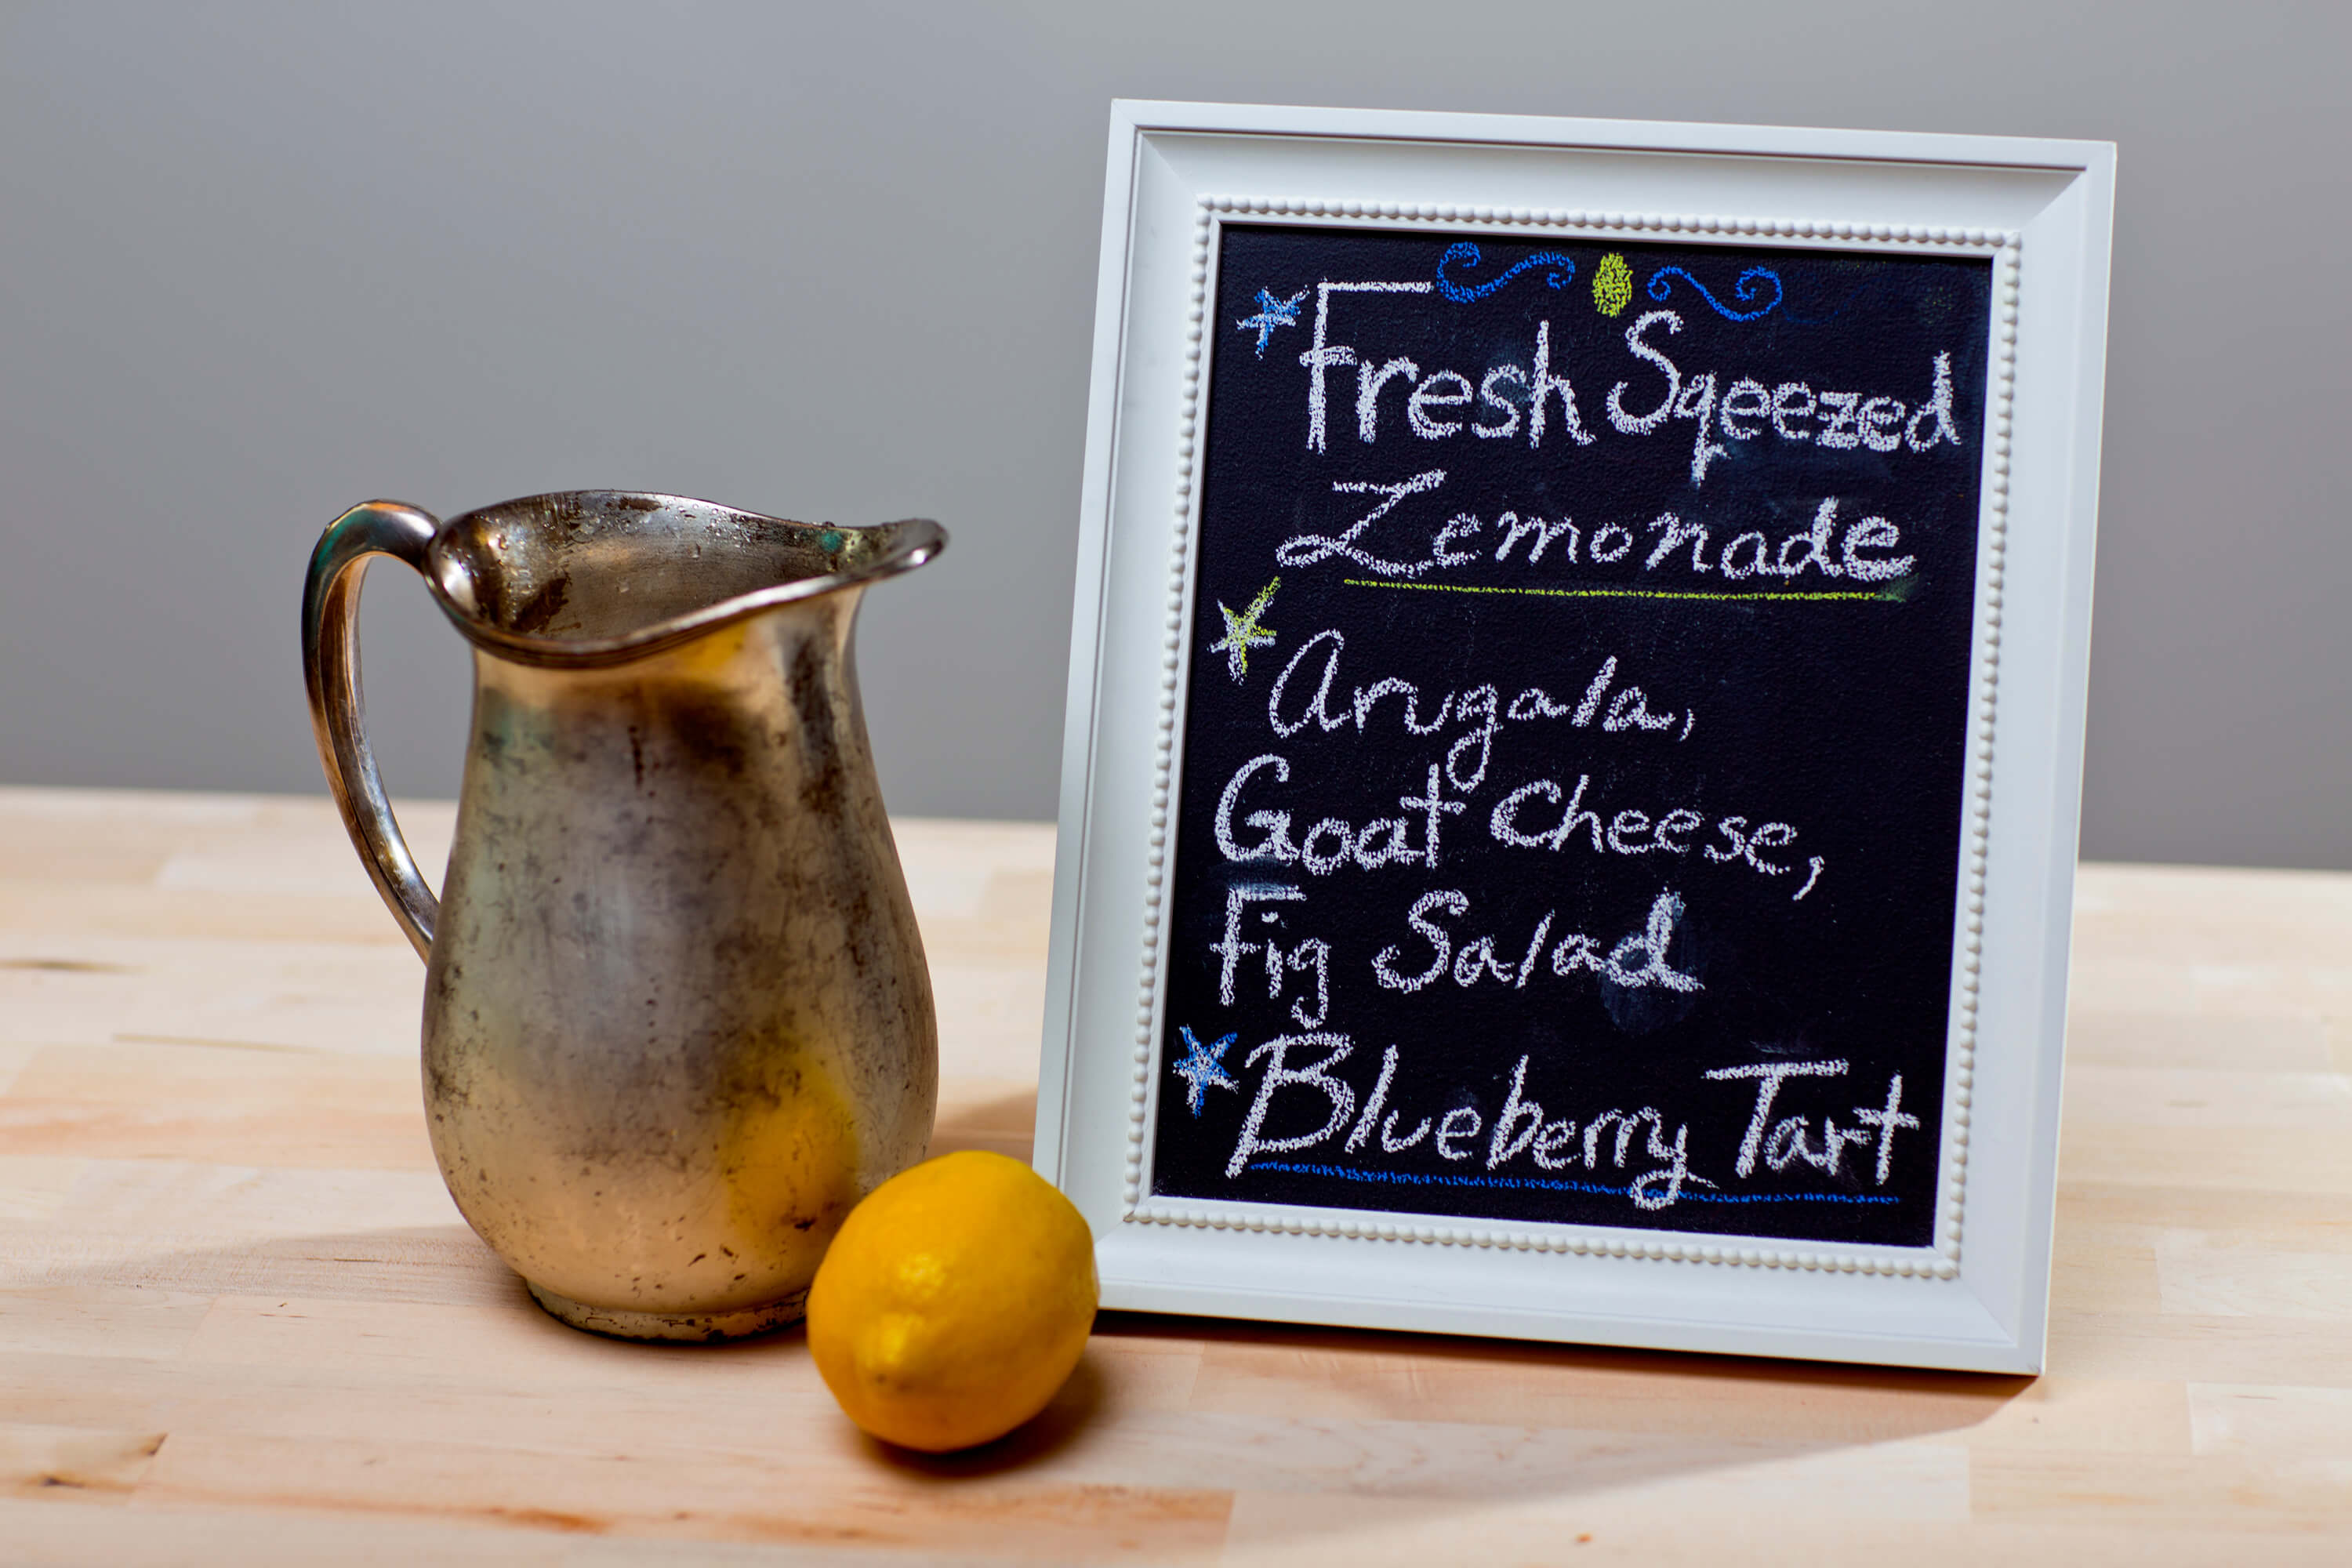 Fresh Sqeezed
Lemonade
Arugala,
Goat Cheese,
Fig Salad
Blueberry Tart